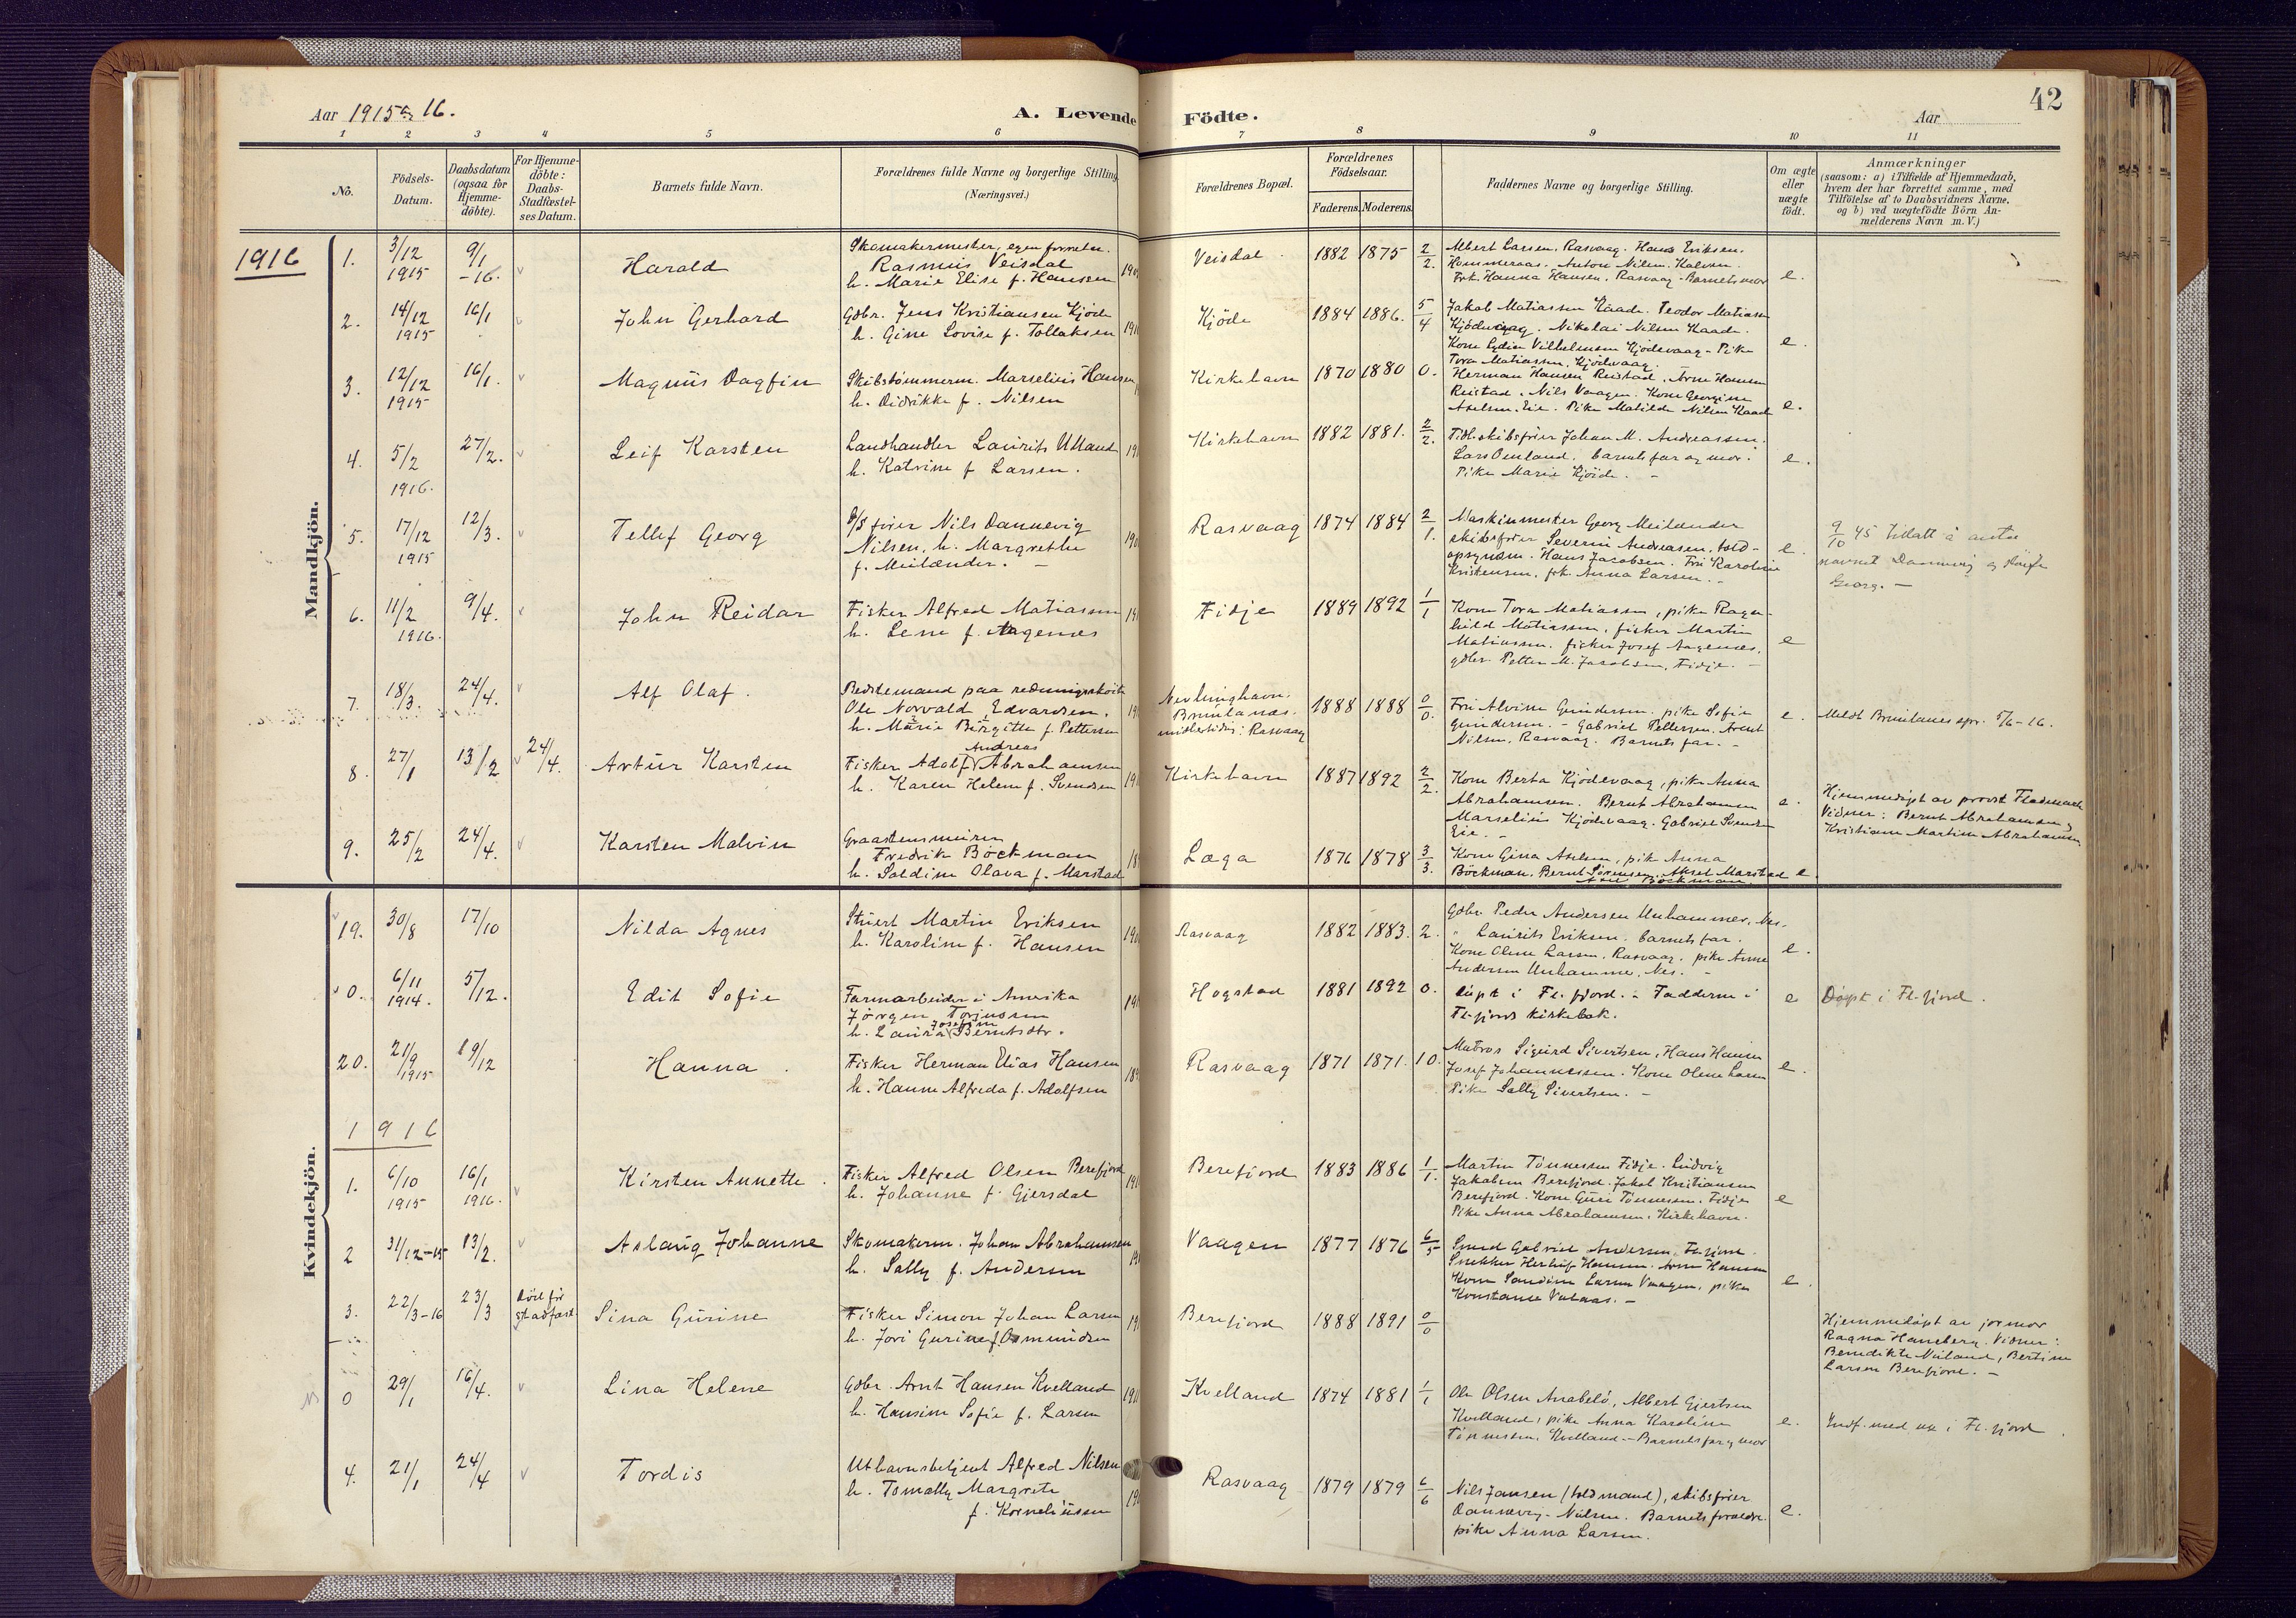 42
Aar 1915 og 16.
A. Levende Födte.
Aar
1 2 3 4 5 6 7 8 9 10 11
No.
Födsels-Datum.
Daabsdatum (ogsaa for Hjemme-döbte).
For Hjemme-döbte: Daabs-Stadfæstel-ses Datum.
Barnets fulde Navn.
Forældrenes fulde Navne og borgerlige Stilling
(Næringsvei.)
Forældrenes Bopæl.
Forældrenes Födselsaar.
Faderens. Moderens.
Faddernes Navne og borgerlige Stilling.
Om ægte eller uægte födt.
Anmærkninger
(saasom: a) i Tilfælde af Hjemmedaab,
hvem der har forrettet samme, med
Tilföielse af to Daabsvidners Navne,
og b) ved uægtefödte Börn An-
melderens Navn m. V.)
Mandkjön.
1916
1. 3/12 1915 9/1 -16. Harald
Skomakermester, egen forretn.
Rasmus Veisdal
h. Marie Elise f. Hanssen
Veisdal. 1882 1875 2/2.
Albert Larsen, Rasvaag. Hans Eriksen.
Hommeraas. Anton Nilsen. Kalven.
Frk. Hanna Hansen, Rasvaag. Barnets mor
e.
2. 14/12 1915 16/1 John Gerhard
Gdbr. Jens Kristiansen Kjöde
h. Gine Lovise f. Tollaksen
Kjöde 1884 1886. 5/4
Jakob Matiassen Kaade. Teodor Matiassen
Kjödevaag. Nikolai Nilsen Kaade.
Kone Lydia Vilhelmsen Kjödevaag. Pike
Tora Matiassen, Kjödevaag.
e.
3. 12/12 1915 16/1. Magnus Dagfin
Skibstömmerm. Marselius Hansen
h. Didrikke f. Nilsen
Kirkehavn 1870 1880 0.
Herman Hansen Reistad, Arne Hansen
Reistad. Nils Vaagen. Kone Georgine
Axelsen, Eie. Pike Matilde Nilsen Kaade
e.
4. 5/2 1916. 27/2. Leif Karsten
Landhandler Laurits Ulland
h. Katrine f. Larsen.
Kirkehavn 1882 1881. 2/2.
Fidh. skibsfører Johan M. Andreassen.
Lars Omland. barnets far og mor.
Pike Marie Kjöde. -
e.
5. 17/12 1915 12/3. Tellef Georg
S/S fører Nils Dannevig
Nilsen, h. Margrethe
f. Meilænder. -
Rasvaag 1874 1884 2/1.
Maskinmester Georg Meilænder
skibsfører Severin Andreasen, told-
opsynsm. Hans Jacobsen. Fru Karoline
Kristensen, frk. Anna Larsen. -
e.
9/10 45 tillatt å anta
navnet Dannevig og sløife
Georg. -
6. 11/2 1916. 9/4. John Reidar
Fisker Alfred Matiassen
h. Lene f. Aagenes
Fidje 1889 1892 1/1
Kone Tora Matiassen, pike Ragn-
hild Matiassen, fisker Martin
Matiassen. fisker Josef Aagenes.
gdbr. Petter M. Jacobsen, Fidje. -
e
7. 18/3. 24/4. Alf Olaf.
Bedstemand paa redningsskøite
Ole Norvald Edvardsen.
h. Marie Birgitte f. Pettersen
Nevlunghavn.
Brunlanes.
midlertidig: Rasvaag
1888 1888 0/0.
Fru Alvine Gundersen. pike Sofie
Gundersen. - Gabriel Pettersen. Arent
Nilsen, Rasvaag. Barnets far. -
e.
Meldt Brunlanes spr. 5/6-16.
8. 27/1 13/2 24/4. Artur Karsten
Andreas
Fisker Adolf Abrahamsen
h. Karen Helene f. Svendsen
Kirkehavn 1887 1892 2/2.
Kone Berta Kjödevaag, pike Anna
Abrahamsen. Bernt Abrahamsen
Marselius Kjödevaag. Gabriel Svendsen
Eie. -
e.
Hjemmedöpt av provst Flodmark
Vidner: Bernt Abrahamsen og
Kristiane Martine Abrahamsen
9. 25/2 24/4. Karsten Malvin
Graastensmurer
Fredrik Böckman
h. Saldine Olava f. Marstad
Læga 1876 1878 3/3.
Kone Gina Axelsen, pike Anna
Böckman. Bernt Sörensen. Aksel Marstad
Böckman.
e.
Kvindekjön.
19. 30/8 17/10 Nilda Agnes
Stuert Martin Eriksen
h. Karoline f. Hansen
Rasvaag 1882 1883. 2.
Gdbr. Peder Andersen Unhammer, Nes.
" Laurits Eriksen. barnets far.
Kone Oline Larsen, Rasvaag, pike Anne
Andersen Unhamme, Nes. -
e.
0. 6/11 1914. 5/12. Edit Sofie
Farmarbeider i Amerika
Jörgen Torjussen
Josefine
h. Laura Berntsdtr.
Hogstad 1881 1892 0.
döpt i Fl. fjord. - Fadderne i
Fl-fjords kirkebok.
e Döpt i Fl-fjord.
20. 21/9 1915 19/12 Hanna.
Fisker Herman Elias Hansen
h. Hanne Alfreda f. Adolfsen
Rasvaag 1871 1871. 10.
Matros Sigurd Sivertsen, Hans Hansen
Josef Johannessen. Kone Oline Larsen
Pike Sally Sivertsen. -
e.
1916
1. 6/10 1915 16/1 1916. Kirsten Annette.
Fisker Alfred Olsen Berefjord
h. Johanne f. Gjersdal
Berefjord 1883 1886 1/1.
Martin Tönnessen Fidje. Ludvig
Jakobsen Berefjord. Jakob Kristiansen
Berefjord. Kone Guri Tönnessen, Fidje
Pike Anna Abrahamsen, Kirkehavn.
e
2 31/12-15 13/2. Aslaug Johanne
Skomakerm. Johan Abrahamsen
h. Sally f. Andersen
Vaagen 1877 1876 6/5
Smed Gabriel Andersen, Fl-fjord.
Snekker Herlof Hansen. Arne Hansen
Kone Sandine Larsen Vaagen, pike
Konstanse Valaas. -
e.
3. 22/3-16 23/3 Död för stadfæst. Sina Gurine
Fisker Simon Johan Larsen
h. Jori Gurine f. Osmundsen
Berefjord 1888 1891 0/0
Hjemmedöpt av jormor
Ragna Haneberg. Vidner:
Benedikte Niuland, Bertine
Larsen Berefjord. -
0 29/1 16/4. Lina Helene
Gdbr. Arnt Hansen Kvelland
h. Hansine Sofie f. Larsen
Kvelland 1874 1881 1/1
Ole Olsen Anabelö, Albert Gjertsen
Kvelland, pike Anna Karoline
Tönnessen, Kvelland. - Barnets far og mor
e. Indf. med no i Fl. fjord.
4. 21/1 24/4 Tordis
Uthavnsbetjent Alfred Nilsen
h. Tomally Margrete
f. Korneliussen
Rasvaag 1879 1879 6/6
Nils Jansen (toldmand), skibsfører
Dannevig-Nilsen. Barnets forældre.
pike Anna Larsen.
e.